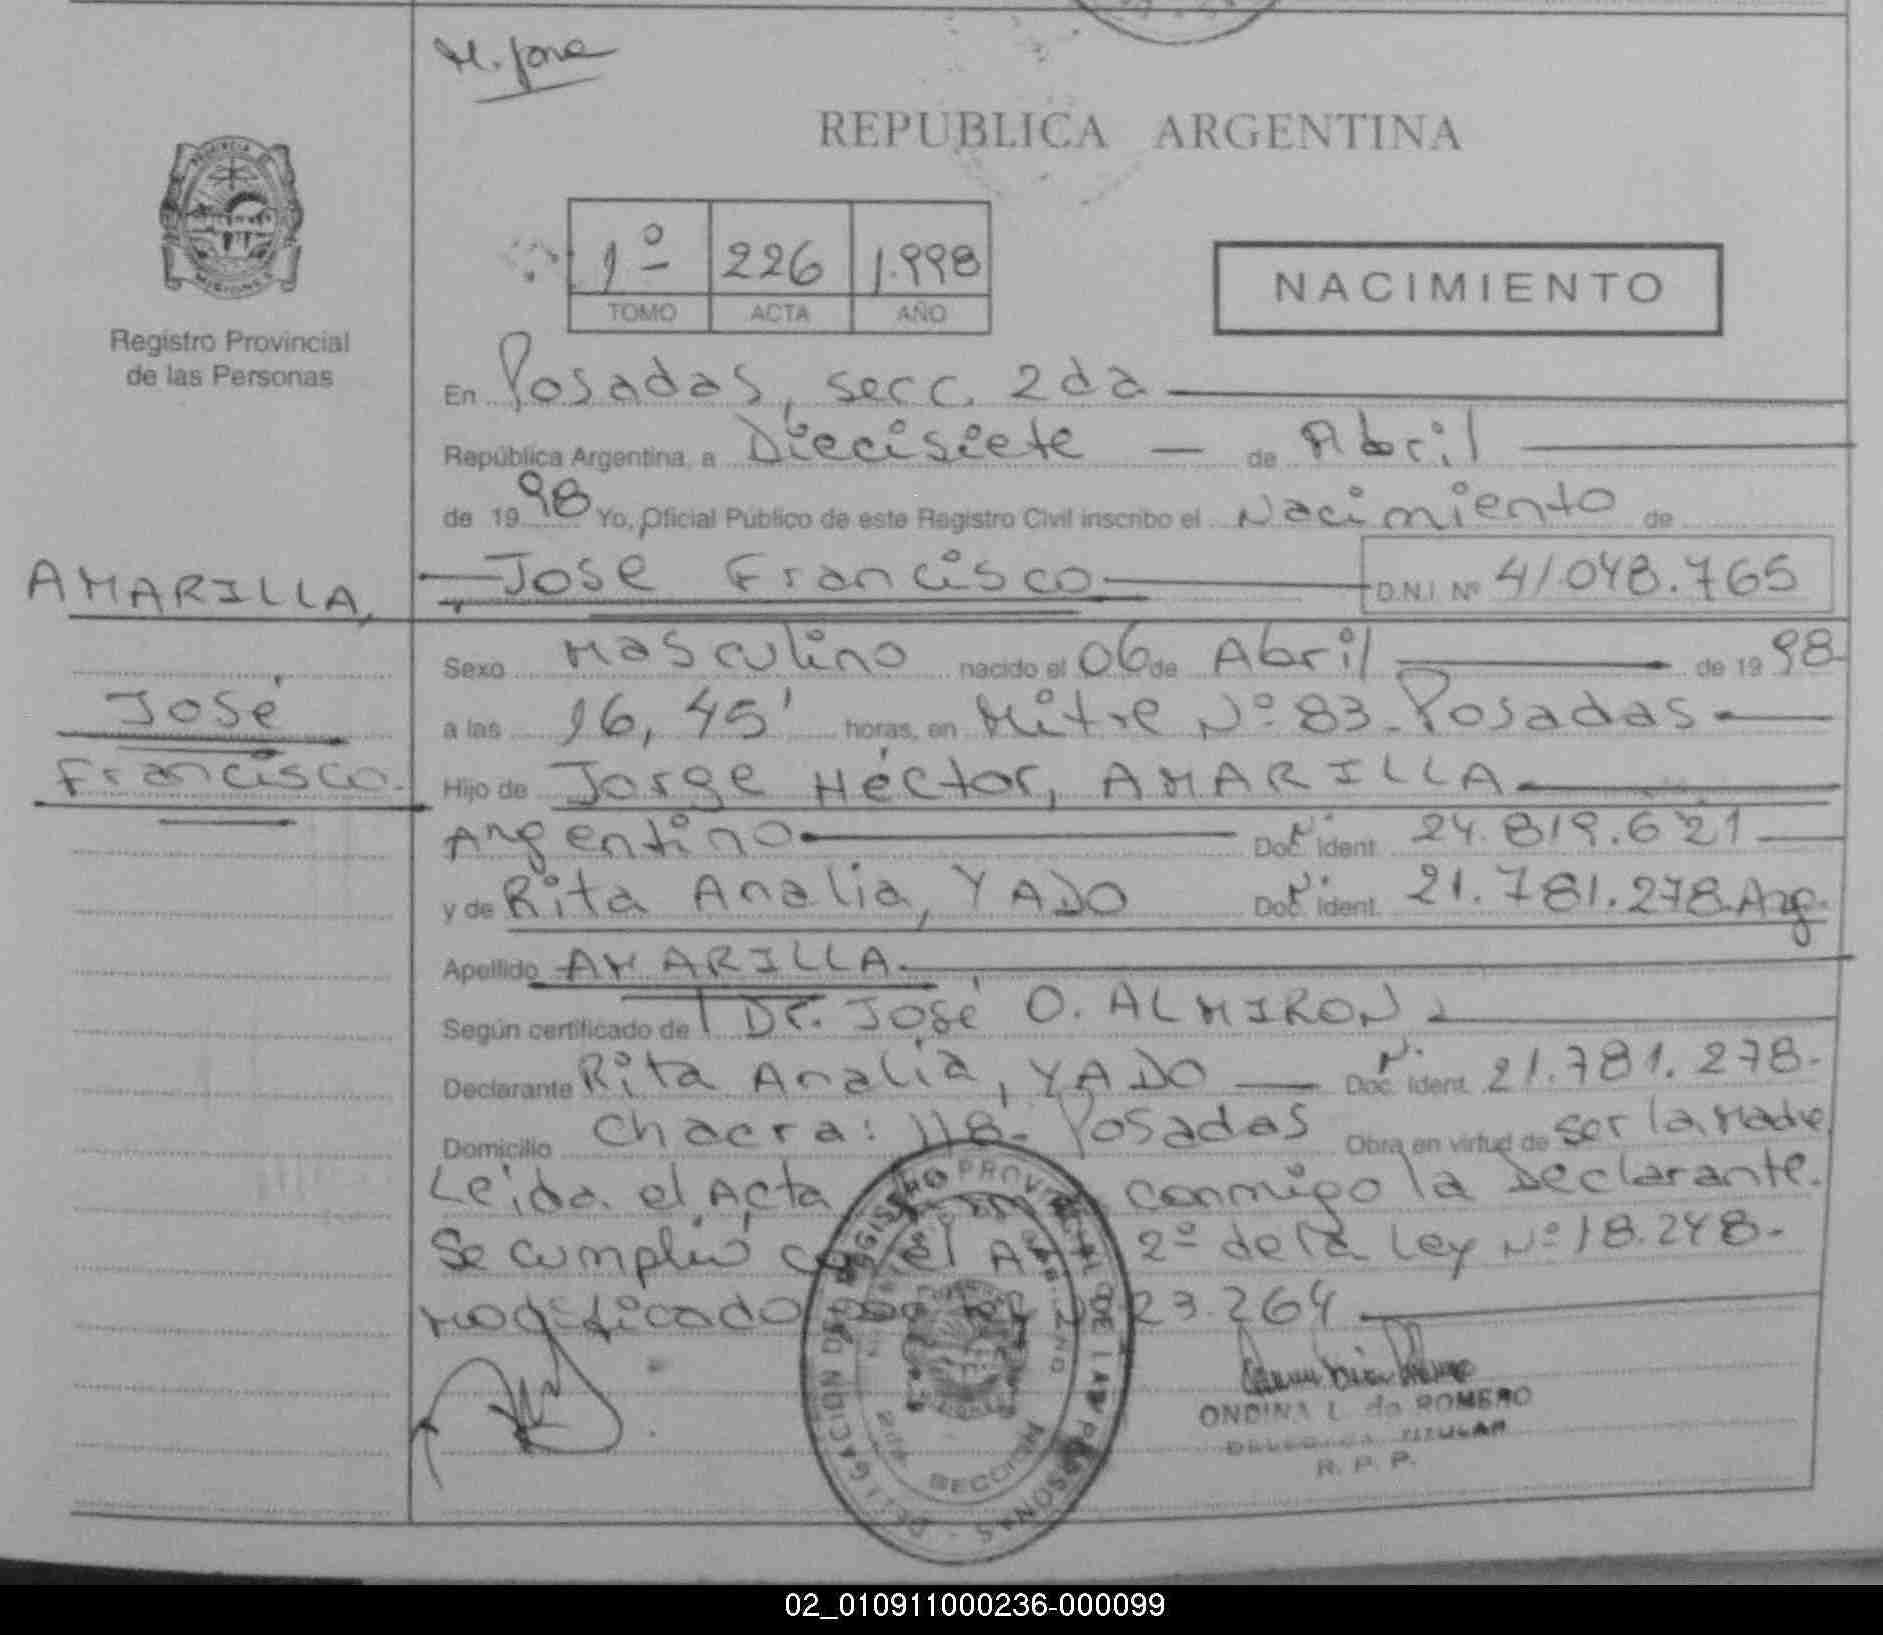 REPUBLICA ARGENTINA
1º 226 1.998
TOMO ACTA AÑO
NACIMIENTO
Registro Provincial
de las Personas
En Posadas, secc. 2da
República Argentina, a Diecisiete de Abril
de 1998 Yo, Oficial Público de este Registro Civil inscribo el Nacimiento de
AMARILLA, Jose Francisco D.N.I. Nº 41048.765
José
Francisco.
Sexo Masculino nacido el 06 de Abril de 1998
a las 16,45' horas, en Mitre Nº 83 - Posadas
Hijo de Jorge Héctor, AMARILLA
Argentino Doc. Ident. 24.819.621
y de Rita Analia, YADO Doc. Ident. 21.781.278. Arg.
Apellido AMARILLA
Según certificado de Dr. José O. ALMIRON
Declarante Rita Analia, YADO Doc. Ident. 21.781.278.
Domicilio Chacra: 118 - Posadas Obra en virtud de ser la Madre.
Leida el Acta conmigo la Declarante.
Se cumplió con el Art. 2º de la Ley Nº 18.248.
modificado por Ley Nº 23.264
REGISTRO PROVINCIAL DE LAS PERSONAS
ONDINA L. de ROMERO
DELEGADA TITULAR
R. P. P.
02_010911000236-000099